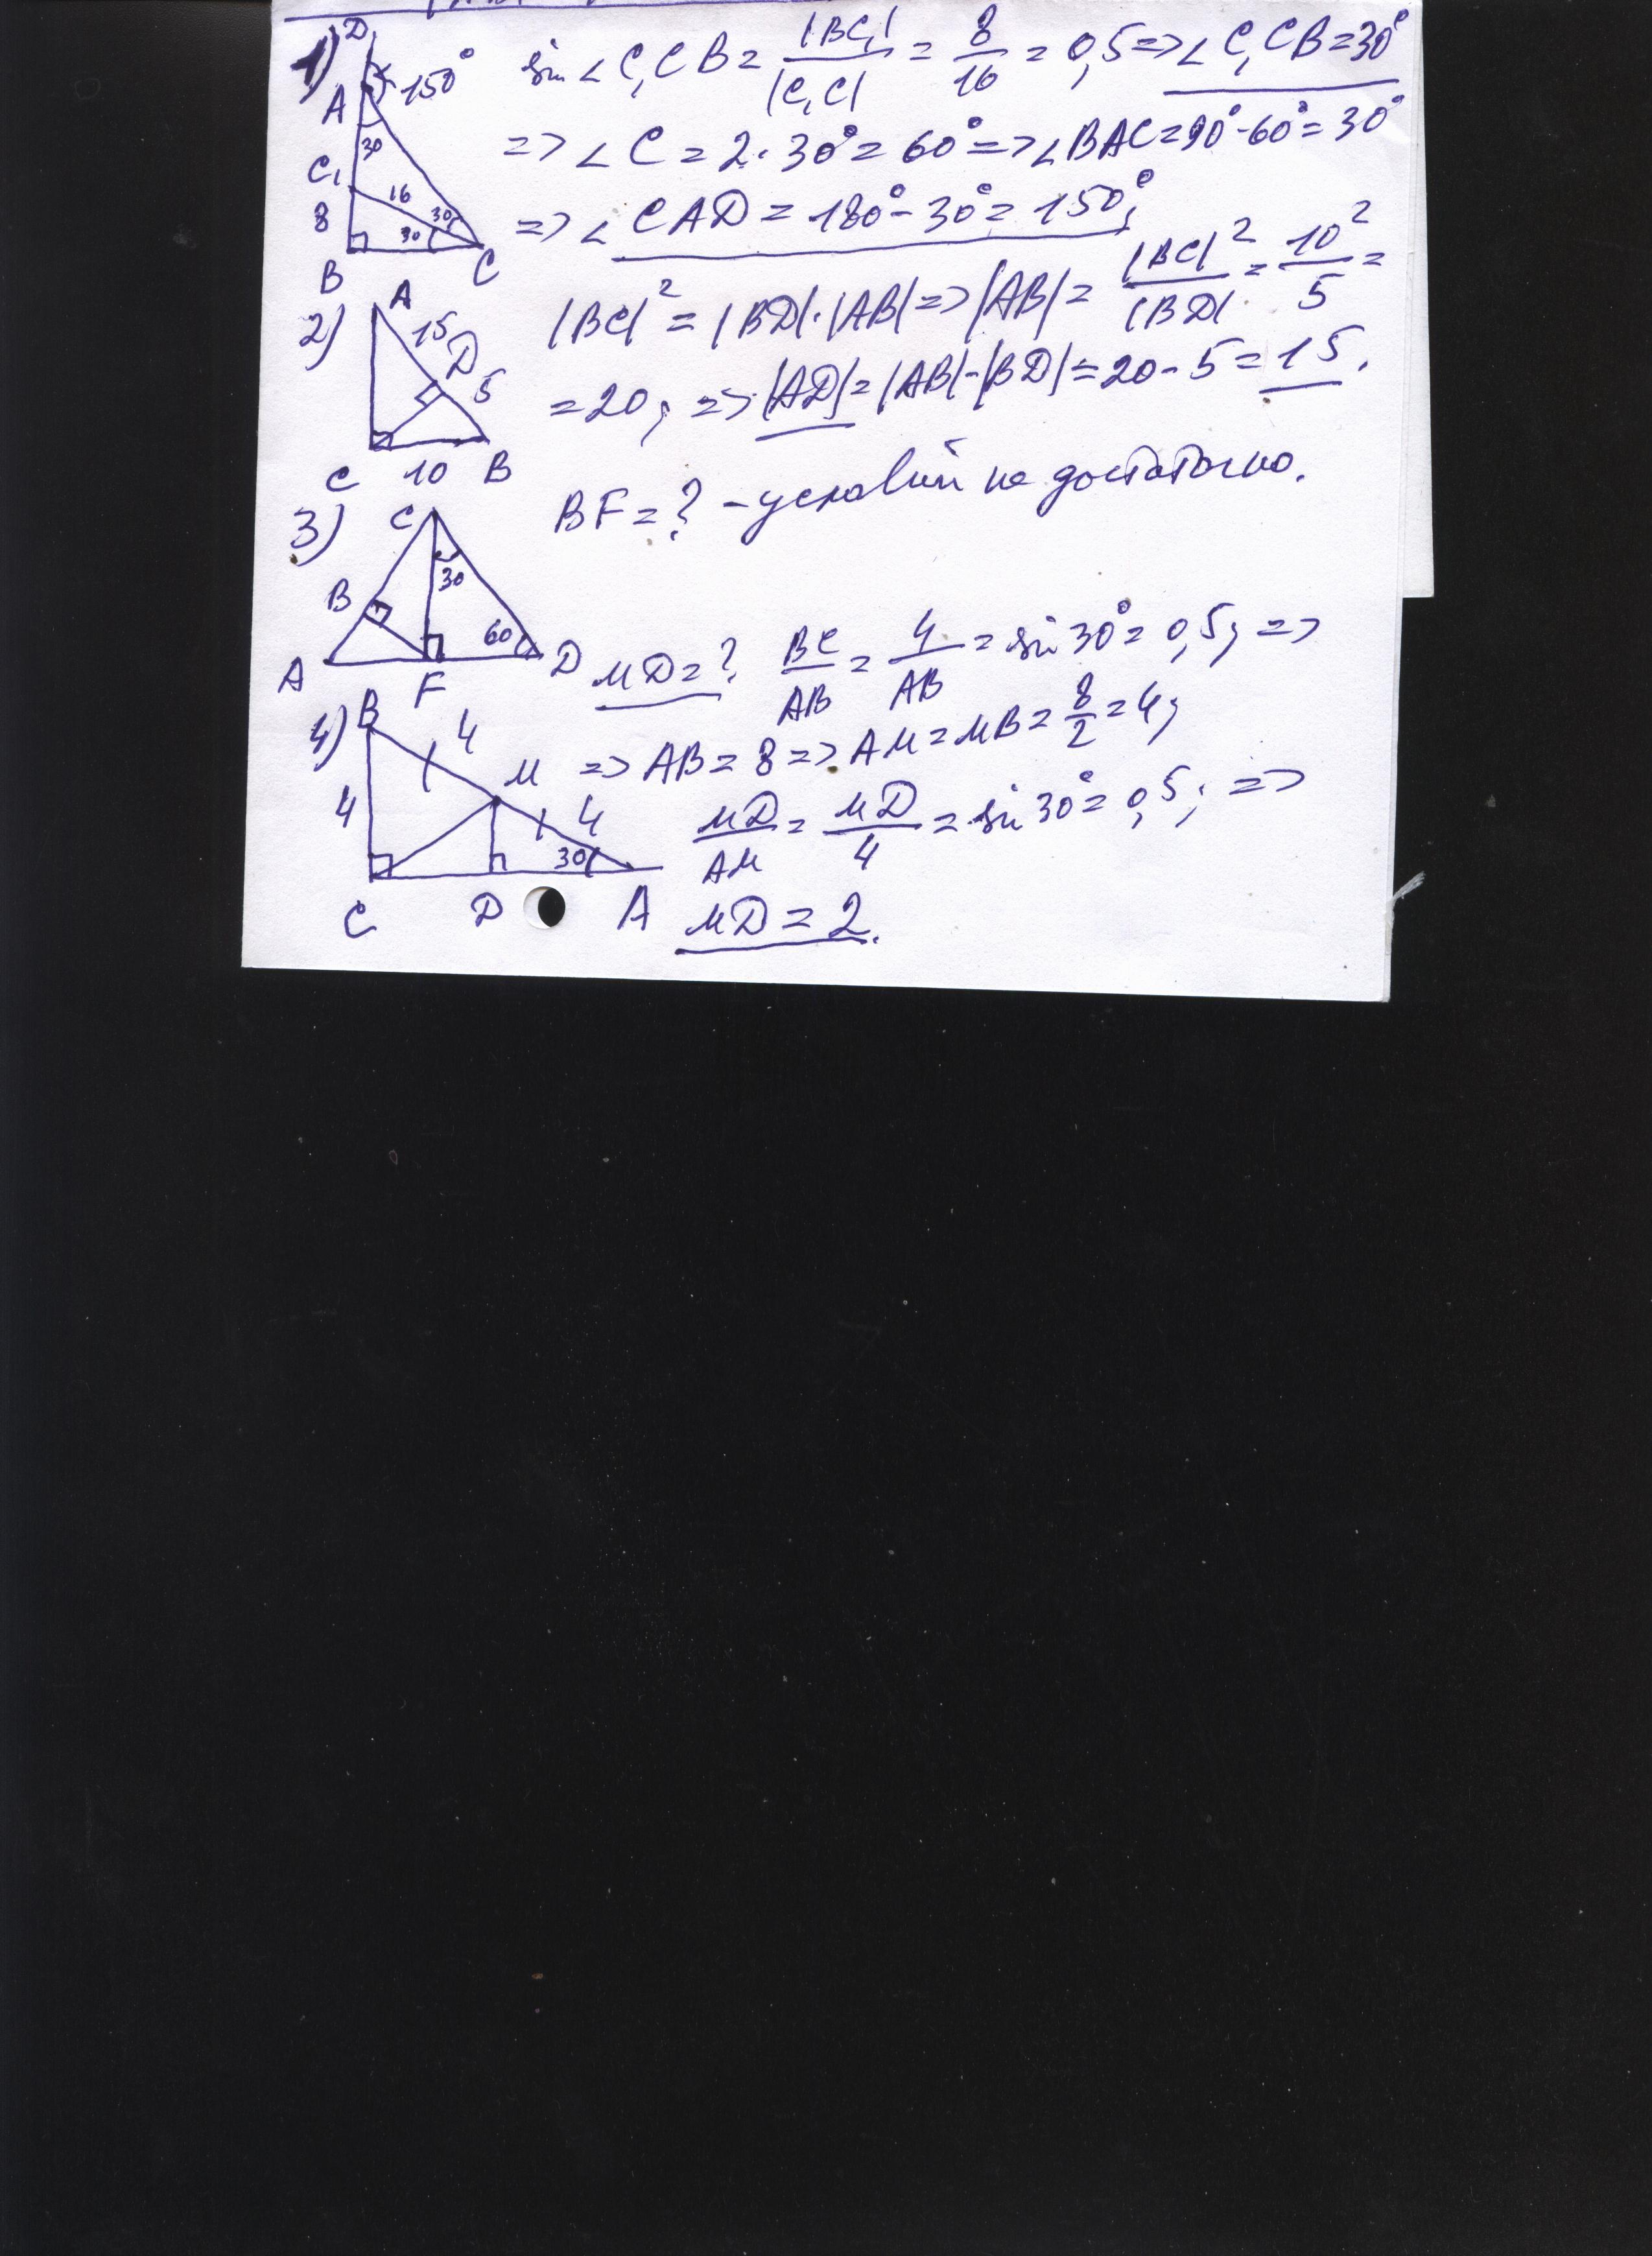 1) D
A 150°
30
C₁
8 16 30
30
B C
sin ∠ C₁CB = |BC₁| / |C₁C| = 8/16 = 0,5 => ∠ C₁CB = 30°
=> ∠ C = 2·30° = 60° => ∠ BAC = 90° - 60° = 30°
=> ∠ CAD = 180° - 30° = 150°;
2) A
15
D
5
C 10 B
|BC|² = |BD|·|AB| => |AB| = |BC|² / |BD| = 10² / 5 =
= 20; => |AD| = |AB| - |BD| = 20 - 5 = 15.
3) C
30
B
60
A F D
BF = ? - условий не достаточно.
4) B
4
M
4 4
30
C D A
MD = ? BC/AB = 4/AB = sin 30° = 0,5; =>
=> AB = 8 => AM = MB = 8/2 = 4;
MD/AM = MD/4 = sin 30° = 0,5; =>
MD = 2.